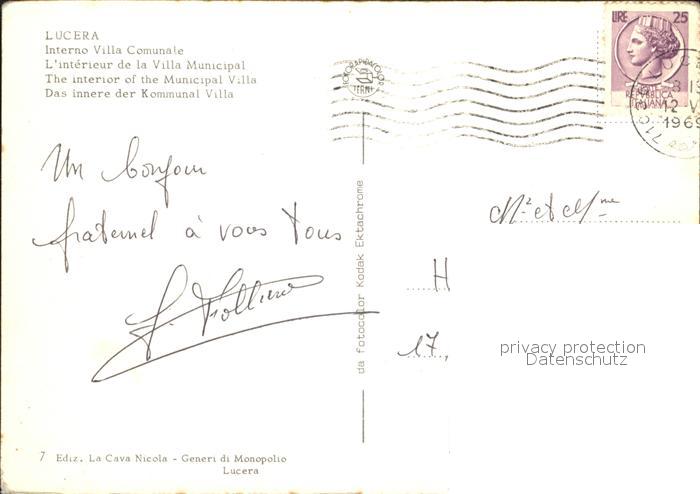 LUCERA
Interno Villa Comunale
L'intérieur de la Villa Municipal
The interior of the Municipal Villa
Das innere der Kommunal Villa
LIRE 25
REPUBBLICA
ITALIANA
12 V
1969
FOTORAPIDACOLOR
TERNI
Un bonjour
fraternel à vous tous
da fotocolor Kodak Ektachrome
Mr et Mme
H
17,
privacy protection
Datenschutz
7 Ediz. La Cava Nicola - Generi di Monopolio
Lucera